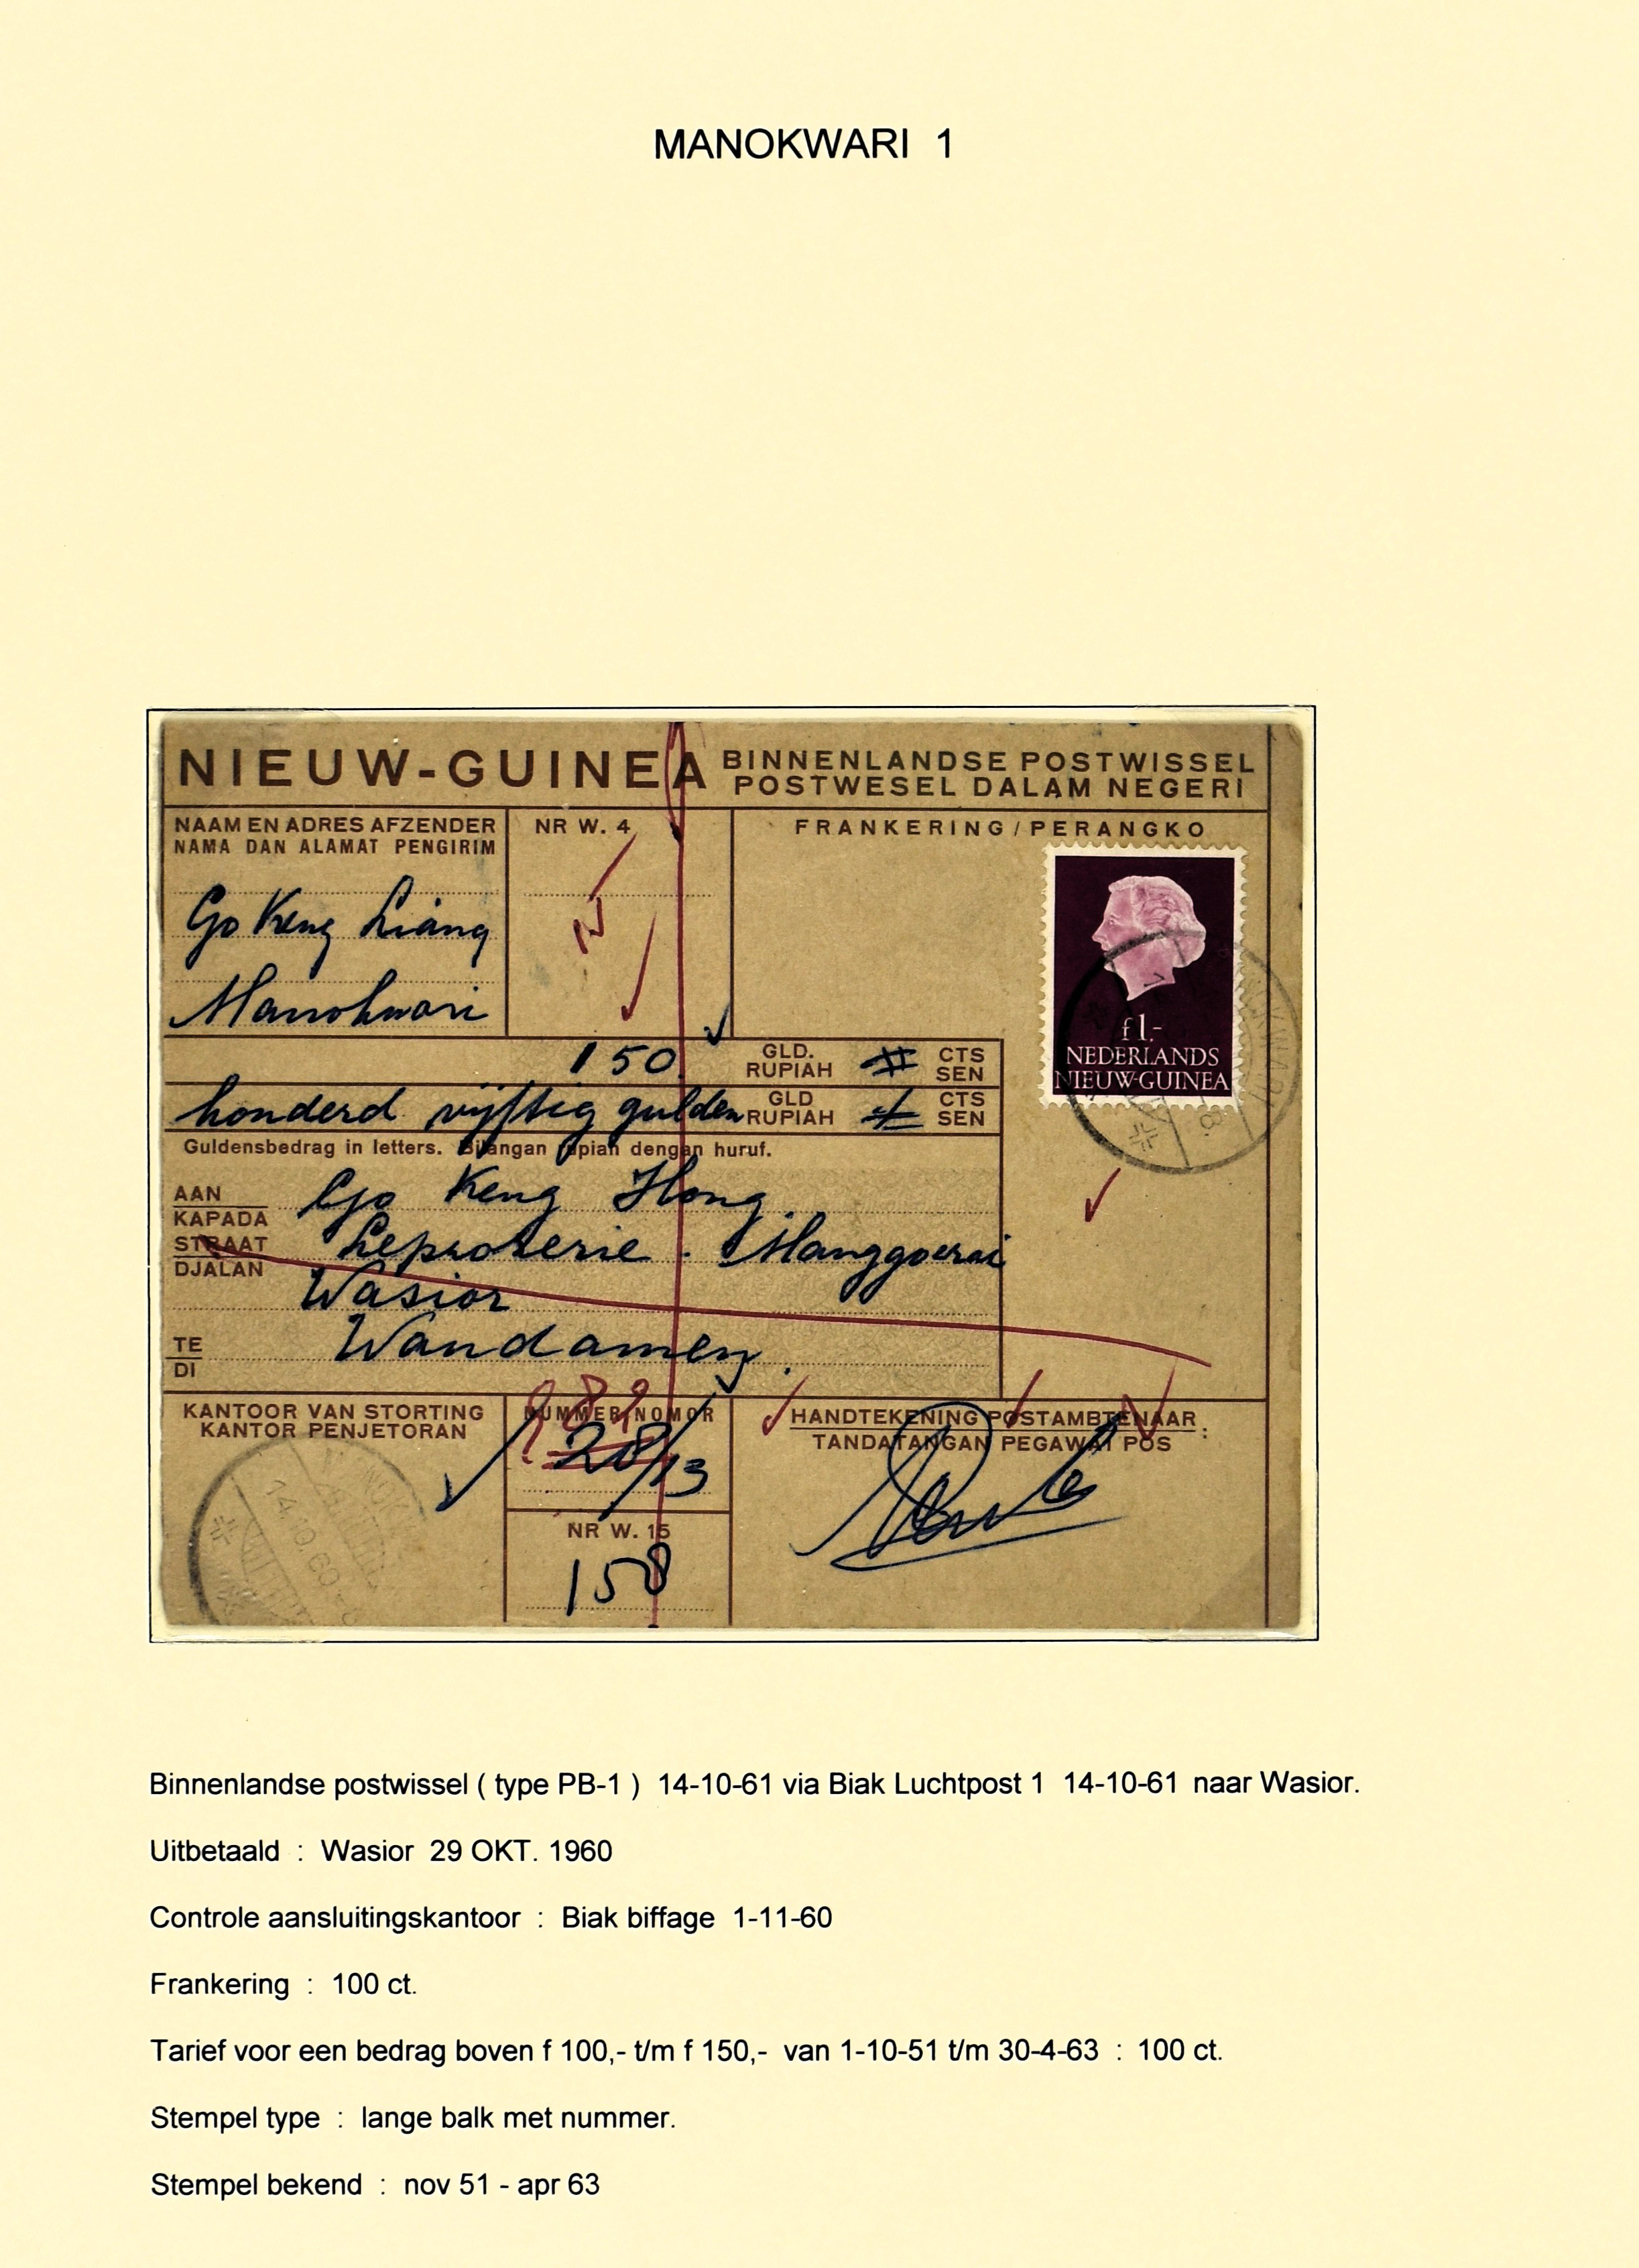 MANOKWARI 1
NIEUW-GUINEA
BINNENLANDSE POSTWISSEL
POSTWESEL DALAM NEGERI
NAAM EN ADRES AFZENDER
NAMA DAN ALAMAT PENGIRIM
Go Keng Liang
Manokwari
NR W. 4
FRANKERING / PERANGKO
f 1.-
NEDERLANDS
NIEUW-GUINEA
150 GLD. RUPIAH CTS SEN
honderd vijftig gulden GLD RUPIAH CTS SEN
Guldensbedrag in letters. Bilangan rupiah dengan huruf.
AAN
KAPADA
Go Keng Hong
STRAAT
DJALAN
Leproserie. Manggoerai
Wasior
TE
DI
Wandamen.
KANTOOR VAN STORTING
KANTOR PENJETORAN
14.10.60
NUMMER/NOMOR
28/13
NR W. 15
158
HANDTEKENING POSTAMBTENAAR :
TANDATANGAN PEGAWAI POS
Binnenlandse postwissel ( type PB-1 ) 14-10-61 via Biak Luchtpost 1 14-10-61 naar Wasior.
Uitbetaald : Wasior 29 OKT. 1960
Controle aansluitingskantoor : Biak biffage 1-11-60
Frankering : 100 ct.
Tarief voor een bedrag boven f 100,- t/m f 150,- van 1-10-51 t/m 30-4-63 : 100 ct.
Stempel type : lange balk met nummer.
Stempel bekend : nov 51 - apr 63